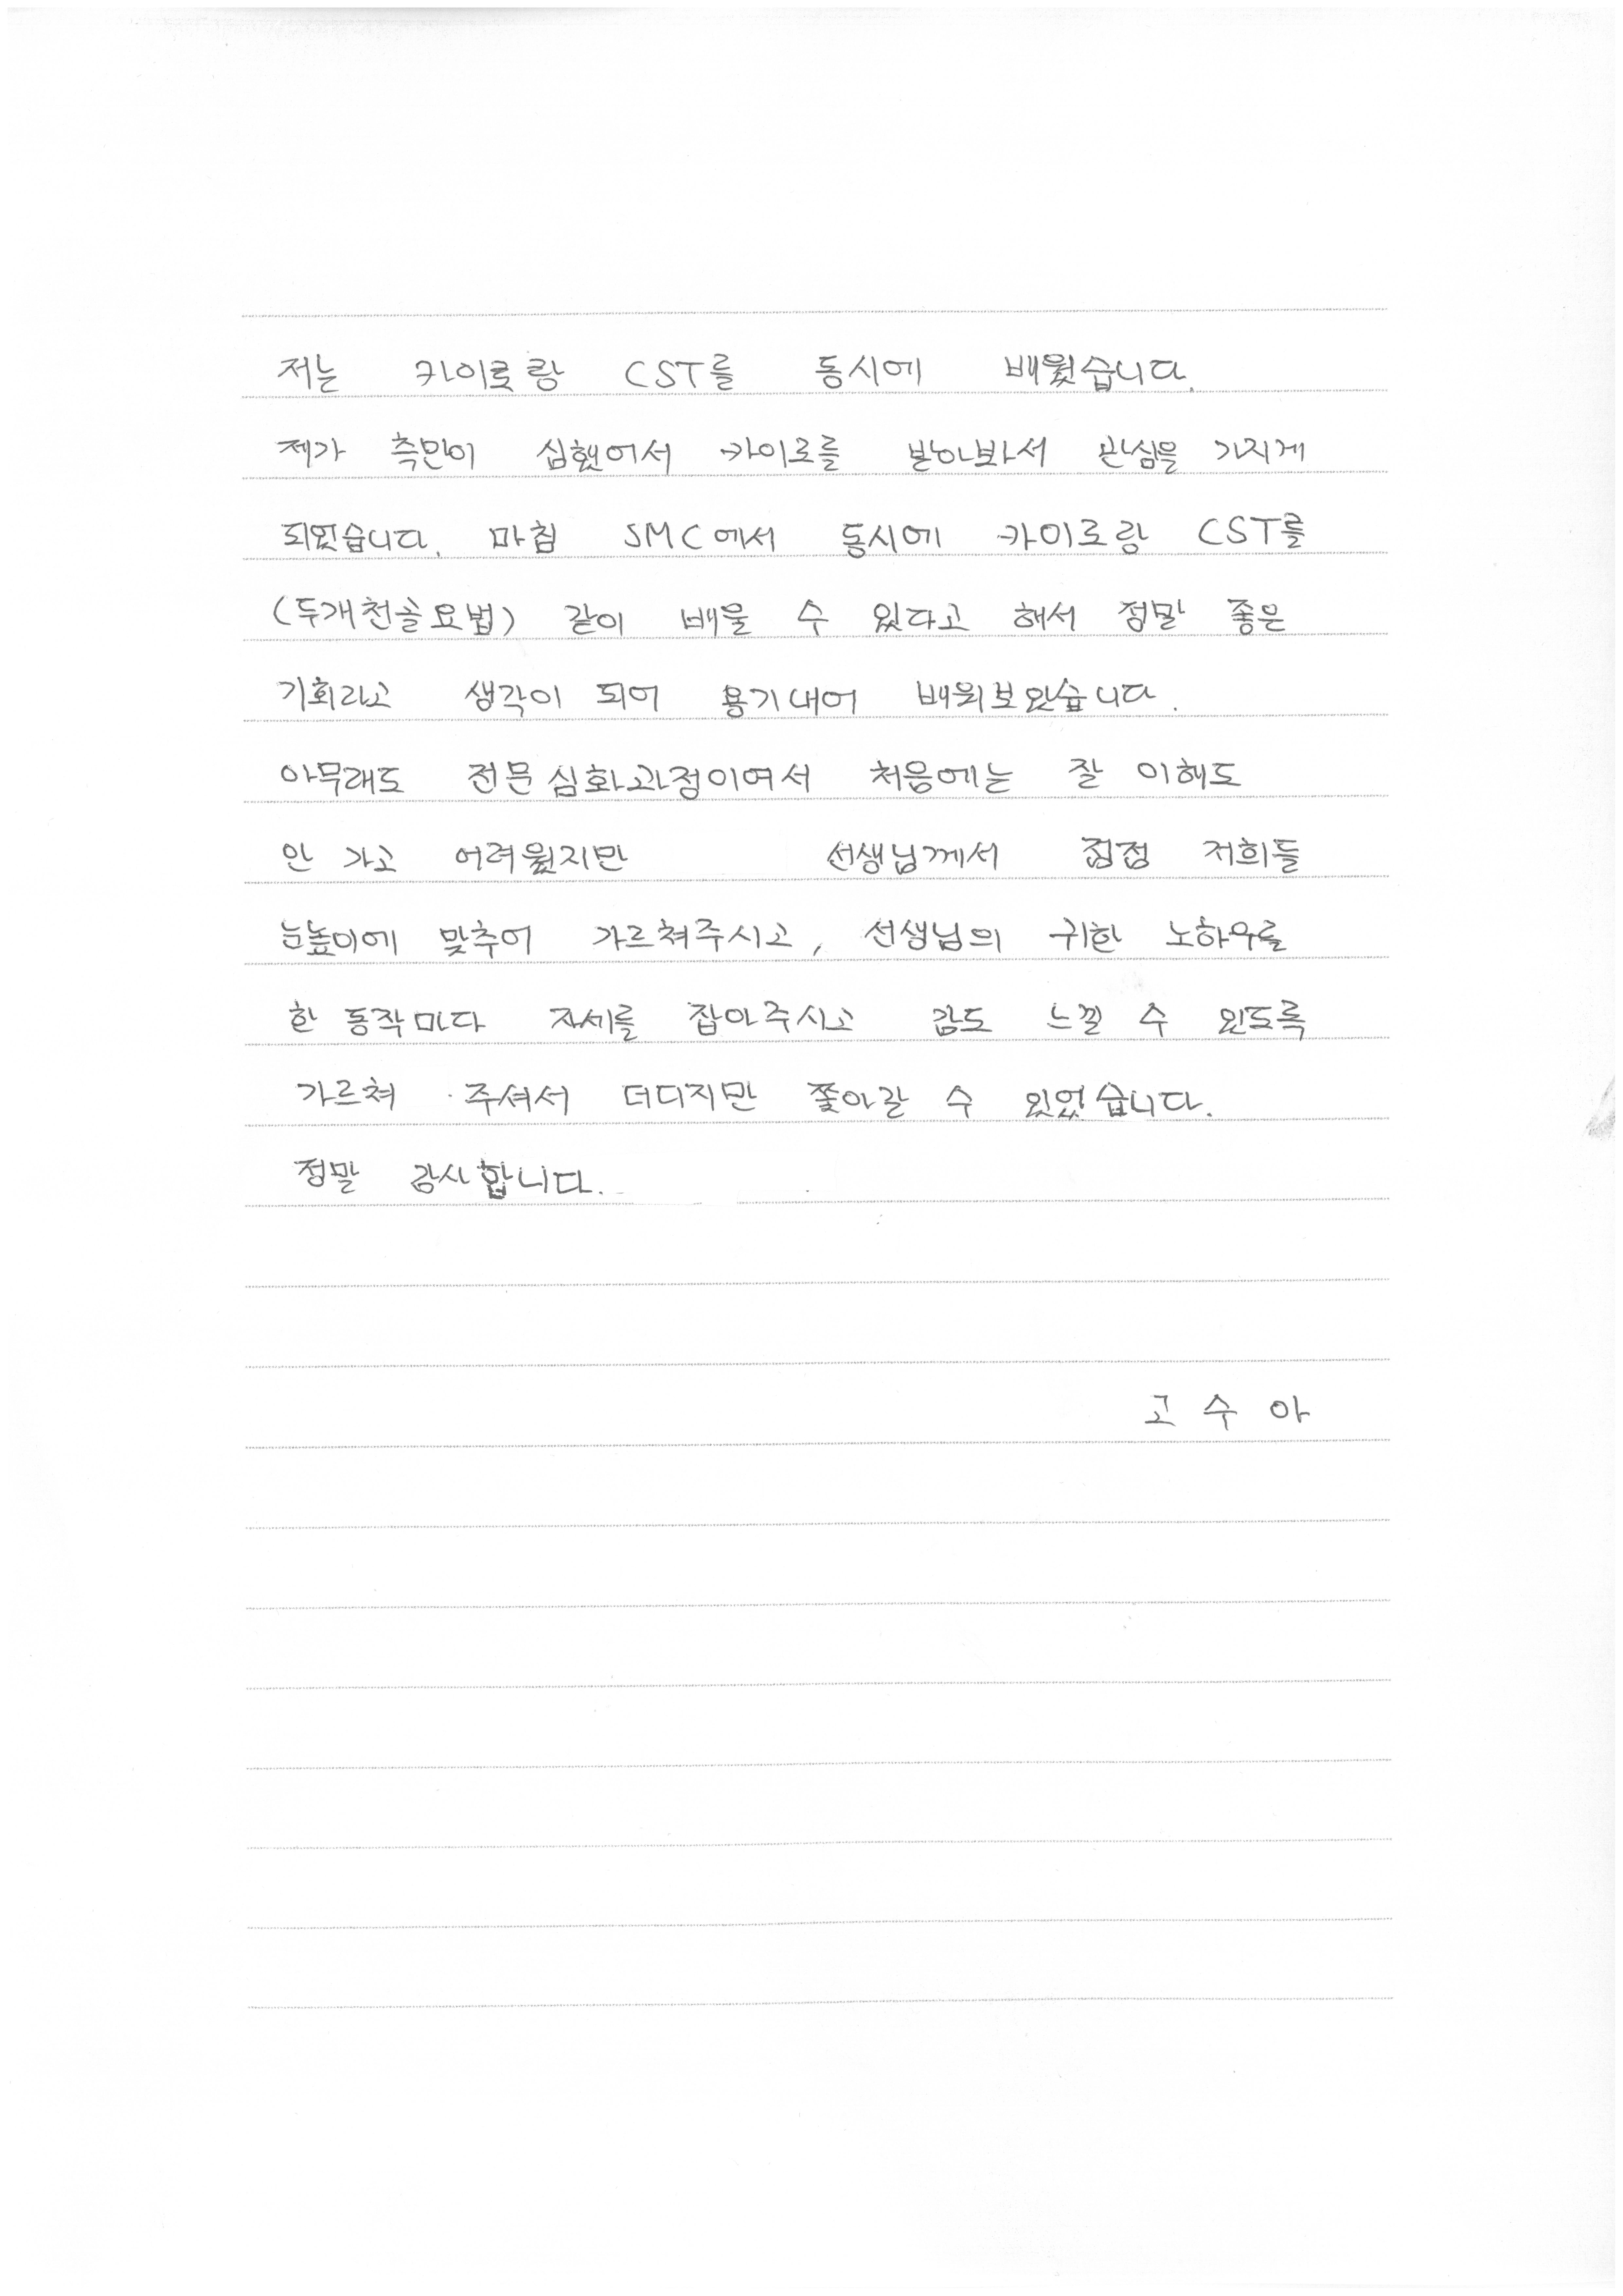 저는 카이로랑 CST를 동시에 배웠습니다.
제가 측만이 심했어서 카이로를 받아봐서 관심을 가지게
되었습니다. 마침 SMC에서 동시에 카이로랑 CST를
(두개천골요법) 같이 배울 수 있다고 해서 정말 좋은
기회라고 생각이 되어 용기내어 배워보았습니다.
아무래도 전문심화과정이여서 처음에는 잘 이해도
안 가고 어려웠지만 선생님께서 점점 저희들
눈높이에 맞추어 가르쳐주시고, 선생님의 귀한 노하우를
한 동작마다 자세를 잡아주시고 감도 느낄 수 있도록
가르쳐 주셔서 더디지만 쫓아갈 수 있었습니다.
정말 감사합니다.
고 수 아